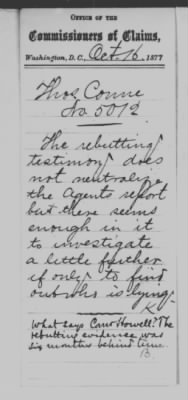 OFFICE OF THE
Commissioners of Claims,
Washington, D. C., Oct. 16, 1877
Thos. Conne
No. 5012
The rebutting
testimony does
not neutralize
the Agents report
but there seems
enough in it
to investigate
a little further
if only to find
out who is lying.
K
What says Com Howell? The
rebutting evidence was
six months behind time
B.